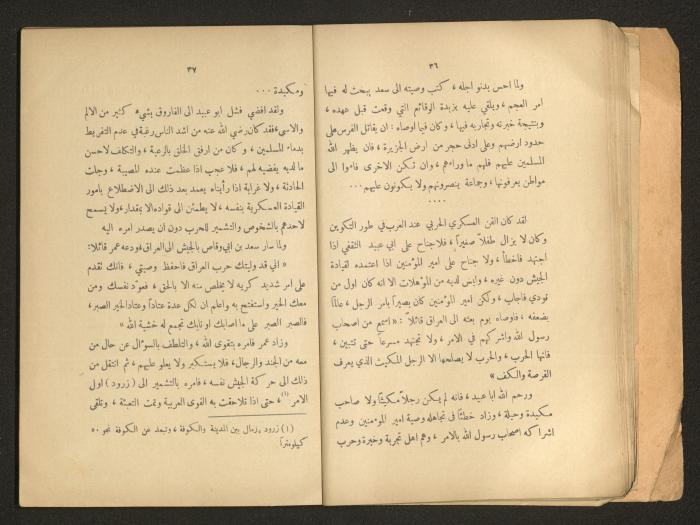 ٣٦
ولما احس بدنو اجله، كتب وصيته الى سعد يبحث له فيها
امر العجم، ويلقي عليه بزبدة الوقائع التي وقعت قبل عهده،
وبنتيجة خبرته وتجاربه فيها، وكان فيما اوصاه: ان يقاتل الفرس على
حدود ارضهم وعلى ادنى حجر من ارض الجزيرة، فان يظهر الله
المسلمين عليهم فلهم ما وراءهم، وان تكن الاخرى فاءوا الى
مواطن يعرفونها، وجماعة ينصرونهم ولا ينكونون عليهم...
....
لقد كان الفن العسكري الحربي عند العرب في طور التكوين
وكان لا يزال طفلاً صغيراً، فلا جناح على ابي عبيد الثقفي اذا
اجتهد فاخطأ، ولا جناح على امير المؤمنين اذا اعتمده لقيادة
الجيش دون غيره، وليس لديه من المؤهلات الا انه كان اول من
نودي فاجاب، ولكن امير المؤمنين كان بصيراً بامر الرجل، عالماً
بضعفه، فاوصاه يوم بعثه الى العراق قائلاً: « استمع من اصحاب
رسول الله واشركهم في الامر، ولا تجتهد مسرعاً حتى تتبين،
فانها الحرب، والحرب لا يصلحها الا الرجل المكيث الذي يعرف
الفرصة والكف »
ورحم الله ابا عبيد، فانه لم يكن رجلاً مكيثاً ولا صاحب
مكيدة وحيلة، وزاد خطئاً في تجاهله وصية امير المؤمنين وعدم
اشراكه اصحاب رسول الله بالامر، وهم اهل تجربة وخبرة وحرب
٣٧
ومكيدة...
ولقد افضي فشل ابو عبيد الى الفاروق بشيء كثير من الالم
والاسى، فقد كان رضي الله عنه من اشد الناس رغبة في عدم التفريط
بدماء المسلمين، وكان من ارفق الخلق بالرعية، والتكلف لاحسن
ما لديه يفضيه لهم، فلا عجب اذا عظمت عنده المصيبة، وجلت
الحادثة، ولا غرابة اذا رأيناه يعمد بعد ذلك الى الاضطلاع بامور
القيادة العسكرية بنفسه، لا يطمئن الى قواده الا بمقدار، ولا يسمح
لاحدهم بالشخوص والتشمير للحرب دون ان يصدر امره اليه
ولما سار سعد بن ابي وقاص بالجيش الى العراق اودعه عمر قائلا:
« اني قد وليتك حرب العراق فاحفظ وصيتي، فانك تقدم
على امر شديد كريه لا يخلص منه الا بالحق، فعود نفسك ومن
معك الخير واستفتح به واعلم ان لكل عدة عتاداً وعتاد الخير الصبر،
فالصبر الصبر على ما اصابك او نابك تجمع له خشية الله »
وزاد عمر فامره بتقوى الله، والتلطف بالسؤال عن حال من
معه من الجند والرجال، فلا يستكبر ولا يعلو عليهم، ثم انتقل من
ذلك الى حركة الجيش نفسه، فامره بالتشمير الى (زرود) اول
الامر (١)، حتى اذا تلاحقت به القوى العربية وتمت التعبئة، وتلقى
(١) زرود، رمال بين المدينة والكوفة، وتبعد عن الكوفة نحو ٥٠
كيلومتراً